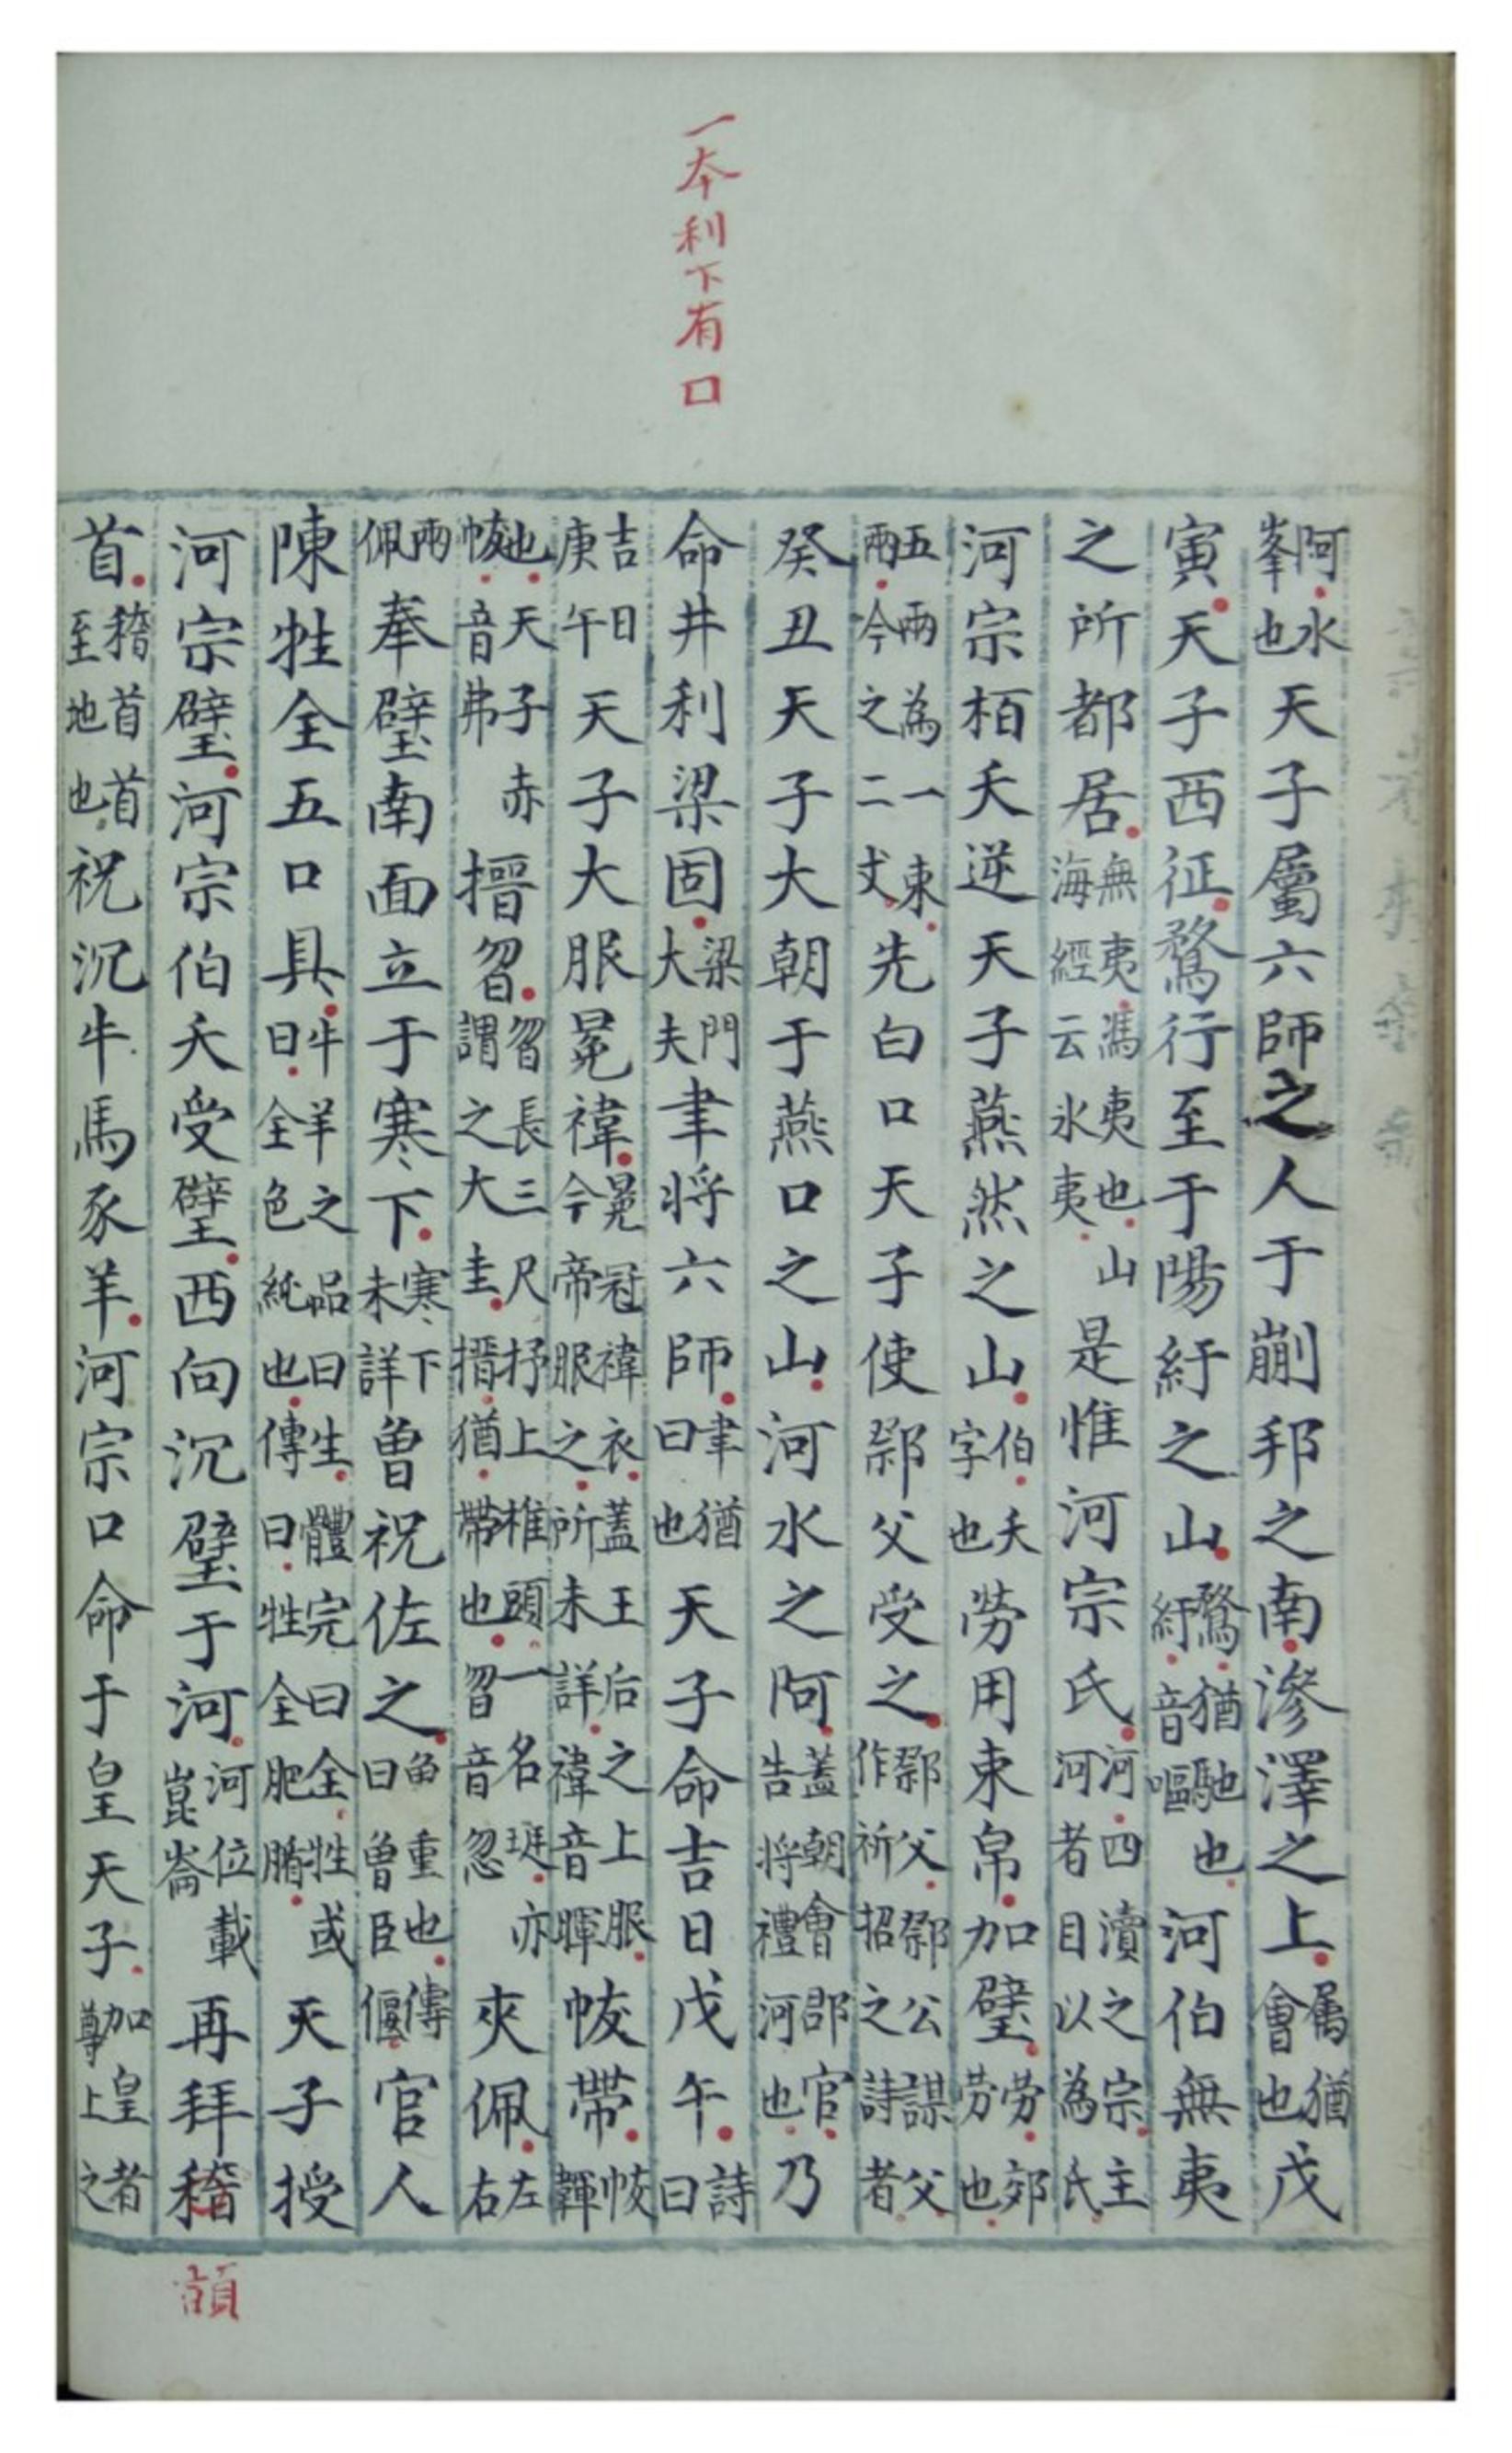 一本利下有口
阿水峯也天子屬六師之人于𨛬邦之南滲澤之上屬猶會也戊
寅天子西征鶩行至于陽紆之山鶩猶馳也紆音嘔河伯無夷
之所都居無夷馮夷也山海經云冰夷是惟河宗氏河四瀆之宗主河者因以為氏
河宗栢夭逆天子燕然之山伯字夭也勞用束帛加璧勞郊勞也
五兩為一束兩今之二丈先白口天子使䣙父受之䣙父䣙公謀父作祈招之詩者
癸丑天子大朝于燕口之山河水之阿蓋朝會郡官告將禮河也乃
命井利梁固梁門大夫聿將六師聿猶曰也天子命吉日戊午詩曰
吉日庚午天子大服冕褘冕冠褘衣蓋王后之上服今帝服之所未詳褘音暉帗帶帗韠
也天子赤帗音弗搢曶曶長三尺抒上椎頭一名珽亦謂之大圭搢猶帶也曶音忽夾佩左右
兩佩奉璧南面立于寒下寒下未詳曽祝佐之曽重也傳曰曽臣偃官人
陳牲全五口具牛羊之品曰生體完曰全牲或曰全色純也傳曰牲全肥腯天子授
河宗璧河宗伯夭受璧西向沉璧于河河位載崑崙再拜稽
首稽首首至地也祝沉牛馬豕羊河宗口命于皇天子加皇者尊上之
𩒨